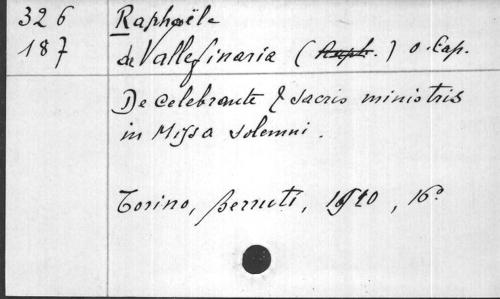 326 Raphaële
187 de Vallefinaria ( ) O. Cap.
De celebrante & sacris ministris
in Missa solemni.
Torino, Berruti, 1920, 16°